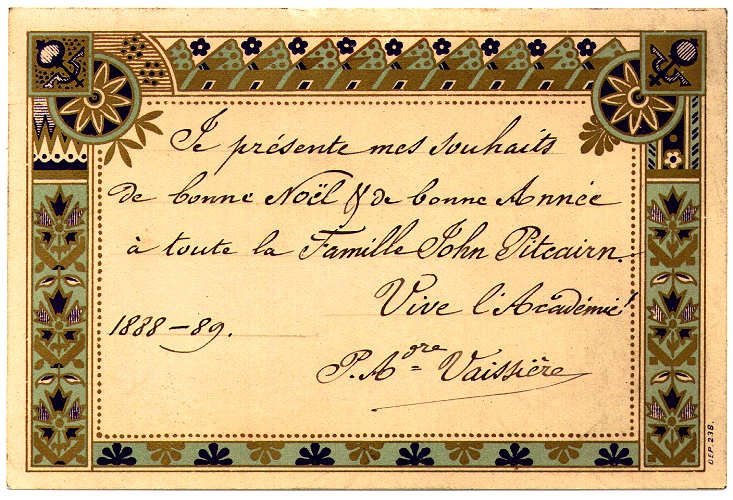 Je présente mes souhaits
de bonne Noël & de bonne Année
à toute la Famille John Pitcairn.
Vive l'Académie!
1888-89.
P. Adre Vaissière
DEP. 238.